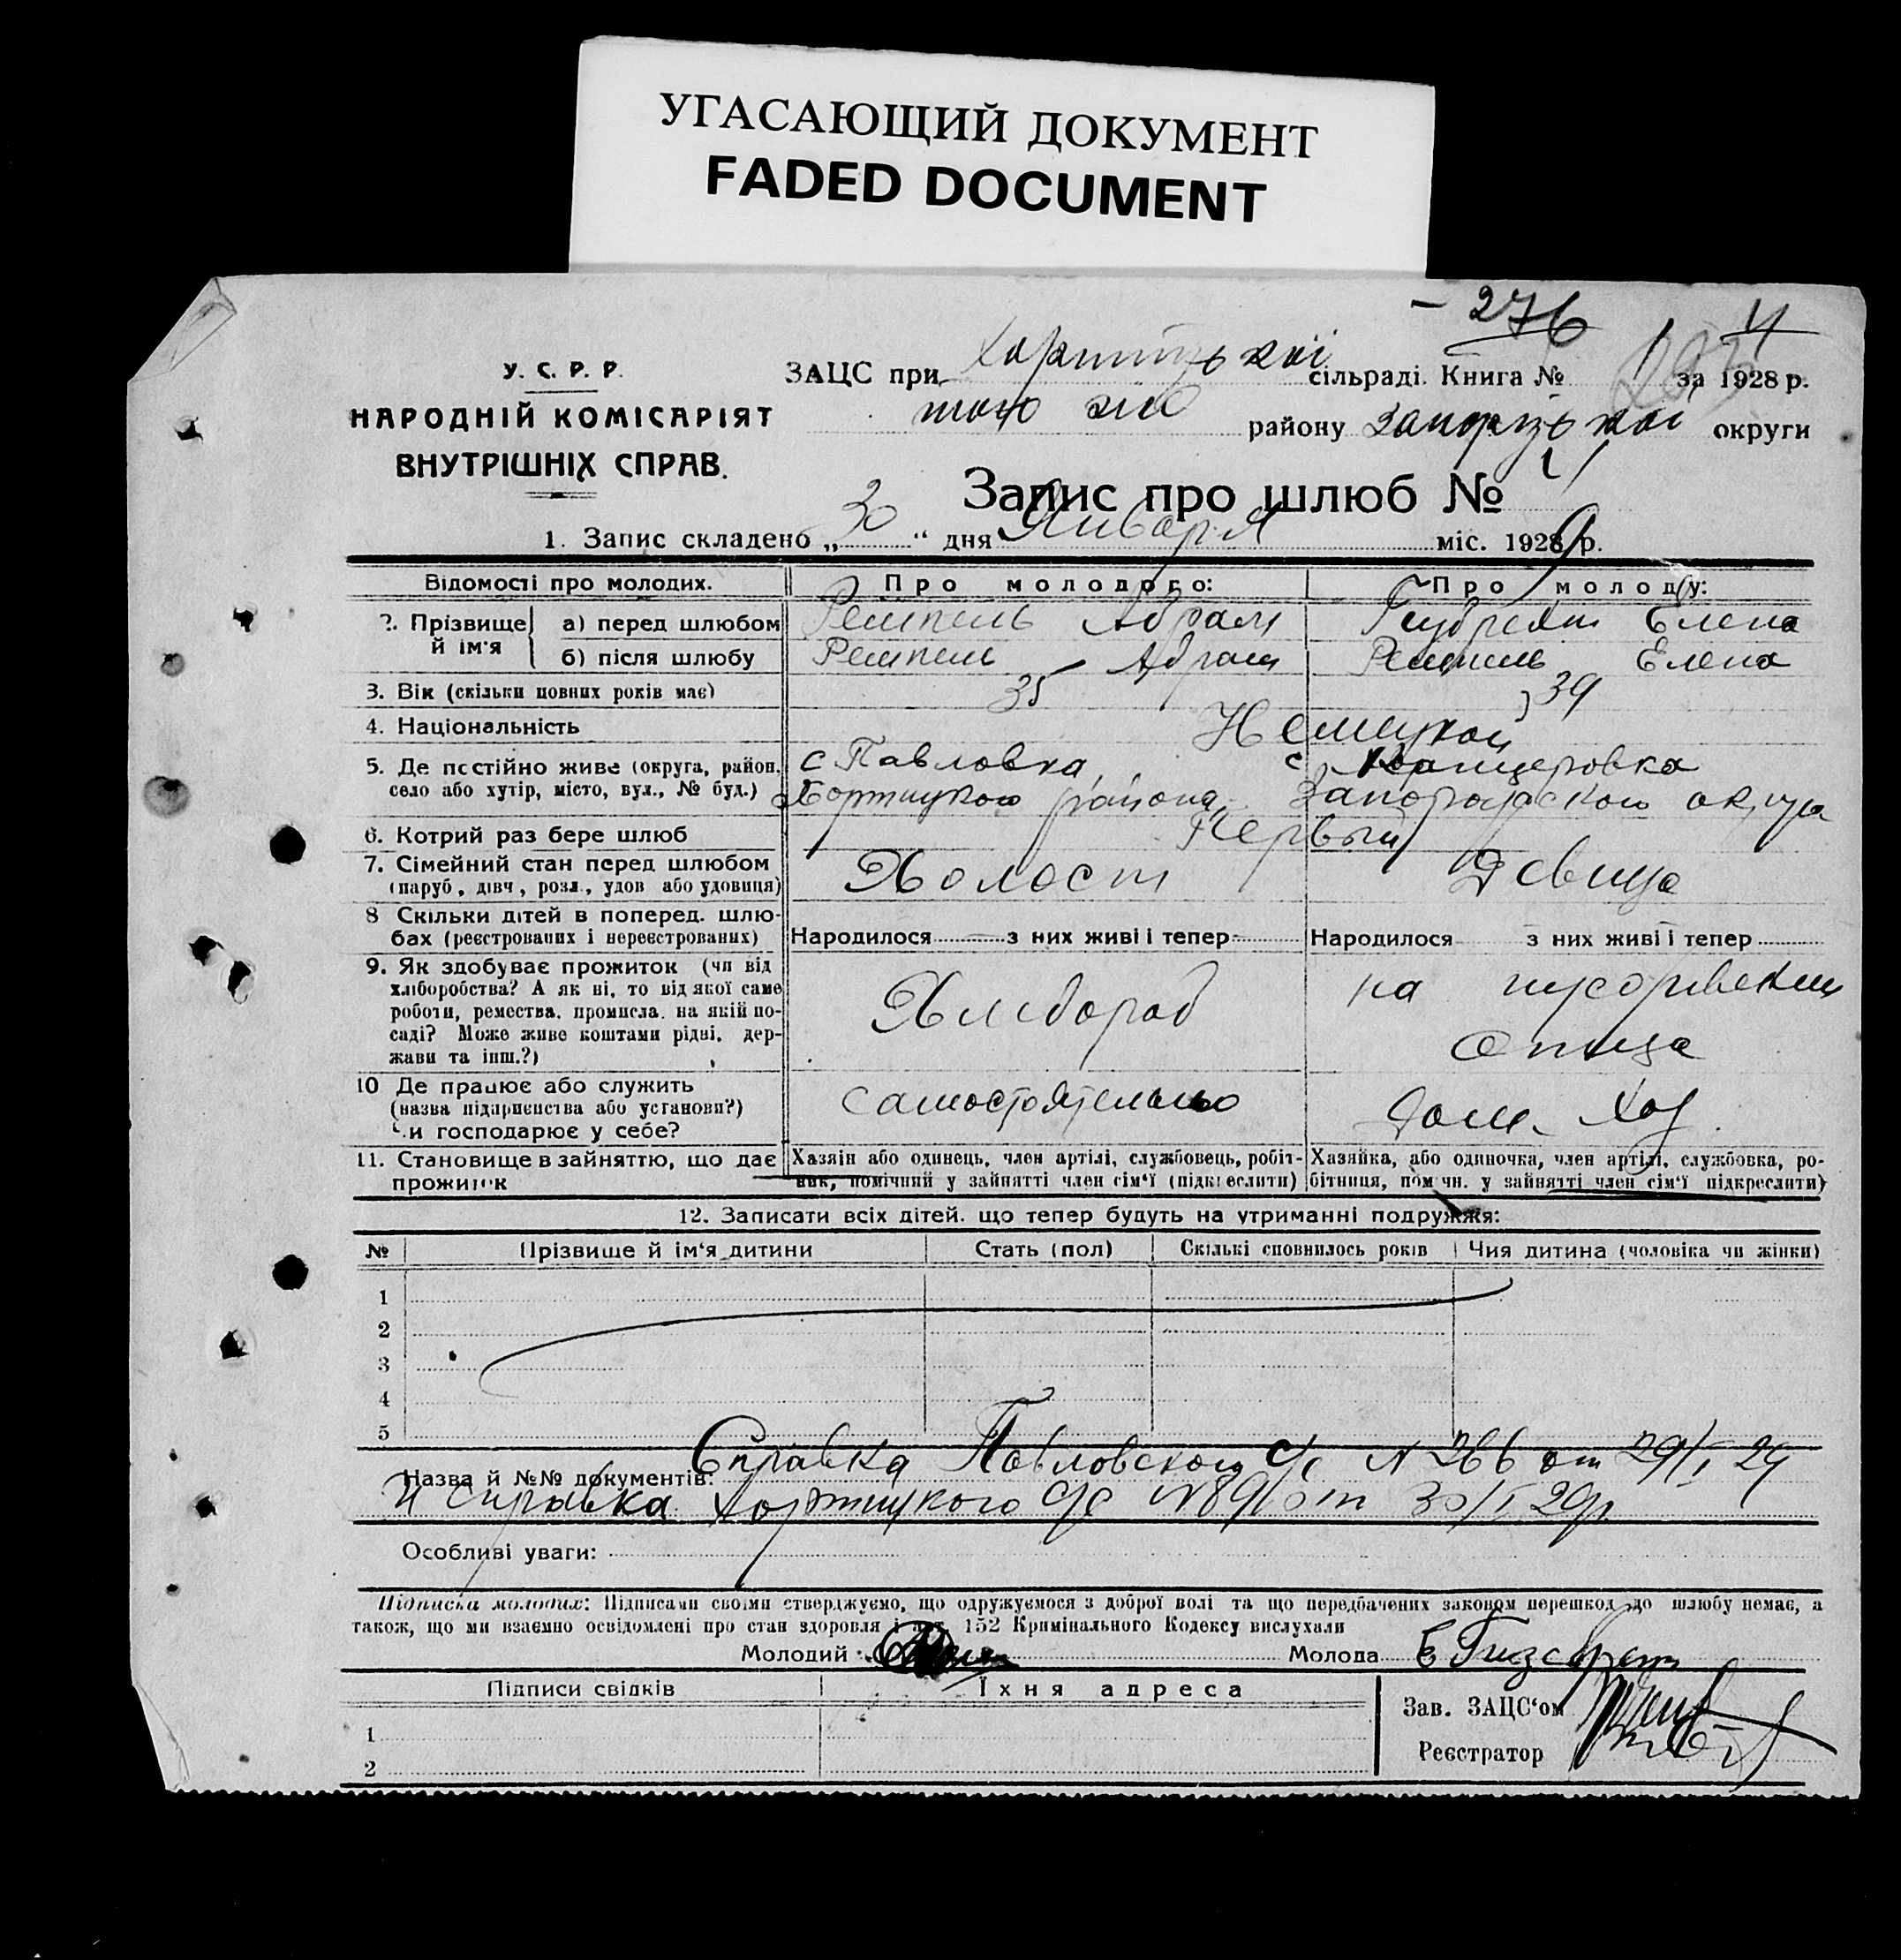 УГАСАЮЩИЙ ДОКУМЕНТ
FADED DOCUMENT
- 276
4
У. С. Р. Р.
НАРОДНІЙ КОМІСАРІЯТ
ВНУТРІШНІХ СПРАВ.
ЗАЦС при Хортицької сільраді. Книга № за 1928 р.
того же району Запорізької округи
Запис про шлюб №
1. Запис складено „30“ дня Января міс. 1929 р.
Відомості про молодих.
Про молодого:
Про молоду:
2. Прізвище й ім'я
а) перед шлюбом
Ремпель Абрам
Елена
б) після шлюбу
Ремпель Абрам
Ремпель Елена
3. Вік (скільки повних років має)
35
39
4. Національність
Немецкой
5. Де постійно живе (округа, район, село або хутір, місто, вул., № буд.)
с Павловка,
Хортицкого района
с Канцеровка
Запорожского округа
6. Котрий раз бере шлюб
Первый
7. Сімейний стан перед шлюбом
(паруб., дівч., розл., удов або удовиця)
Холост
Девица
8 Скільки дітей в поперед. шлю-
бах (реєстрованих і нереєстрованих)
Народилося з них живі і тепер
Народилося з них живі і тепер
9. Як здобуває прожиток (чи від
хліборобства? А як ні, то від якої саме
роботи, ремества, промисла, на якій по-
саді? Може живе коштами рідні, дер-
жави та інш.?)
Хлебороб
на
отца
10 Де працює або служить
(назва підприємства або установи?)
Чи господарює у себе?
самостоятельно
Дом. Хоз.
11. Становище в зайняттю, що дає
прожиток
Хазяін або одинець, член артілі, службовець, робіт-
ник, помічний у зайнятті член сім'ї (підкреслити)
Хазяйка, або одиночка, член артілі, службовка, ро-
бітниця, помічн. у зайнятті член сім'ї підкреслити)
12. Записати всіх дітей, що тепер будуть на утриманні подружжя:
№ Прізвище й ім'я дитини Стать (пол) Скількі сповнилось років Чия дитина (чоловіка чи жінки)
1
2
3
4
5
Назва й №№ документів: Справка Павловского с/с N 266 от 29/I 29
и справка Хортицкого с/с N 89 от 30/I 29р.
Особливі уваги:
Підписка молодих: Підписами своїми стверджуємо, що одружуємося з доброї волі та що передбачених законом перешкод до шлюбу немає, а
також, що ми взаємно освідомлені про стан здоровля і арт. 152 Кримінального Кодексу вислухали
Молодий
Молода
Підписи свідків
Їхня адреса
1
2
Зав. ЗАЦС'ом
Реєстратор